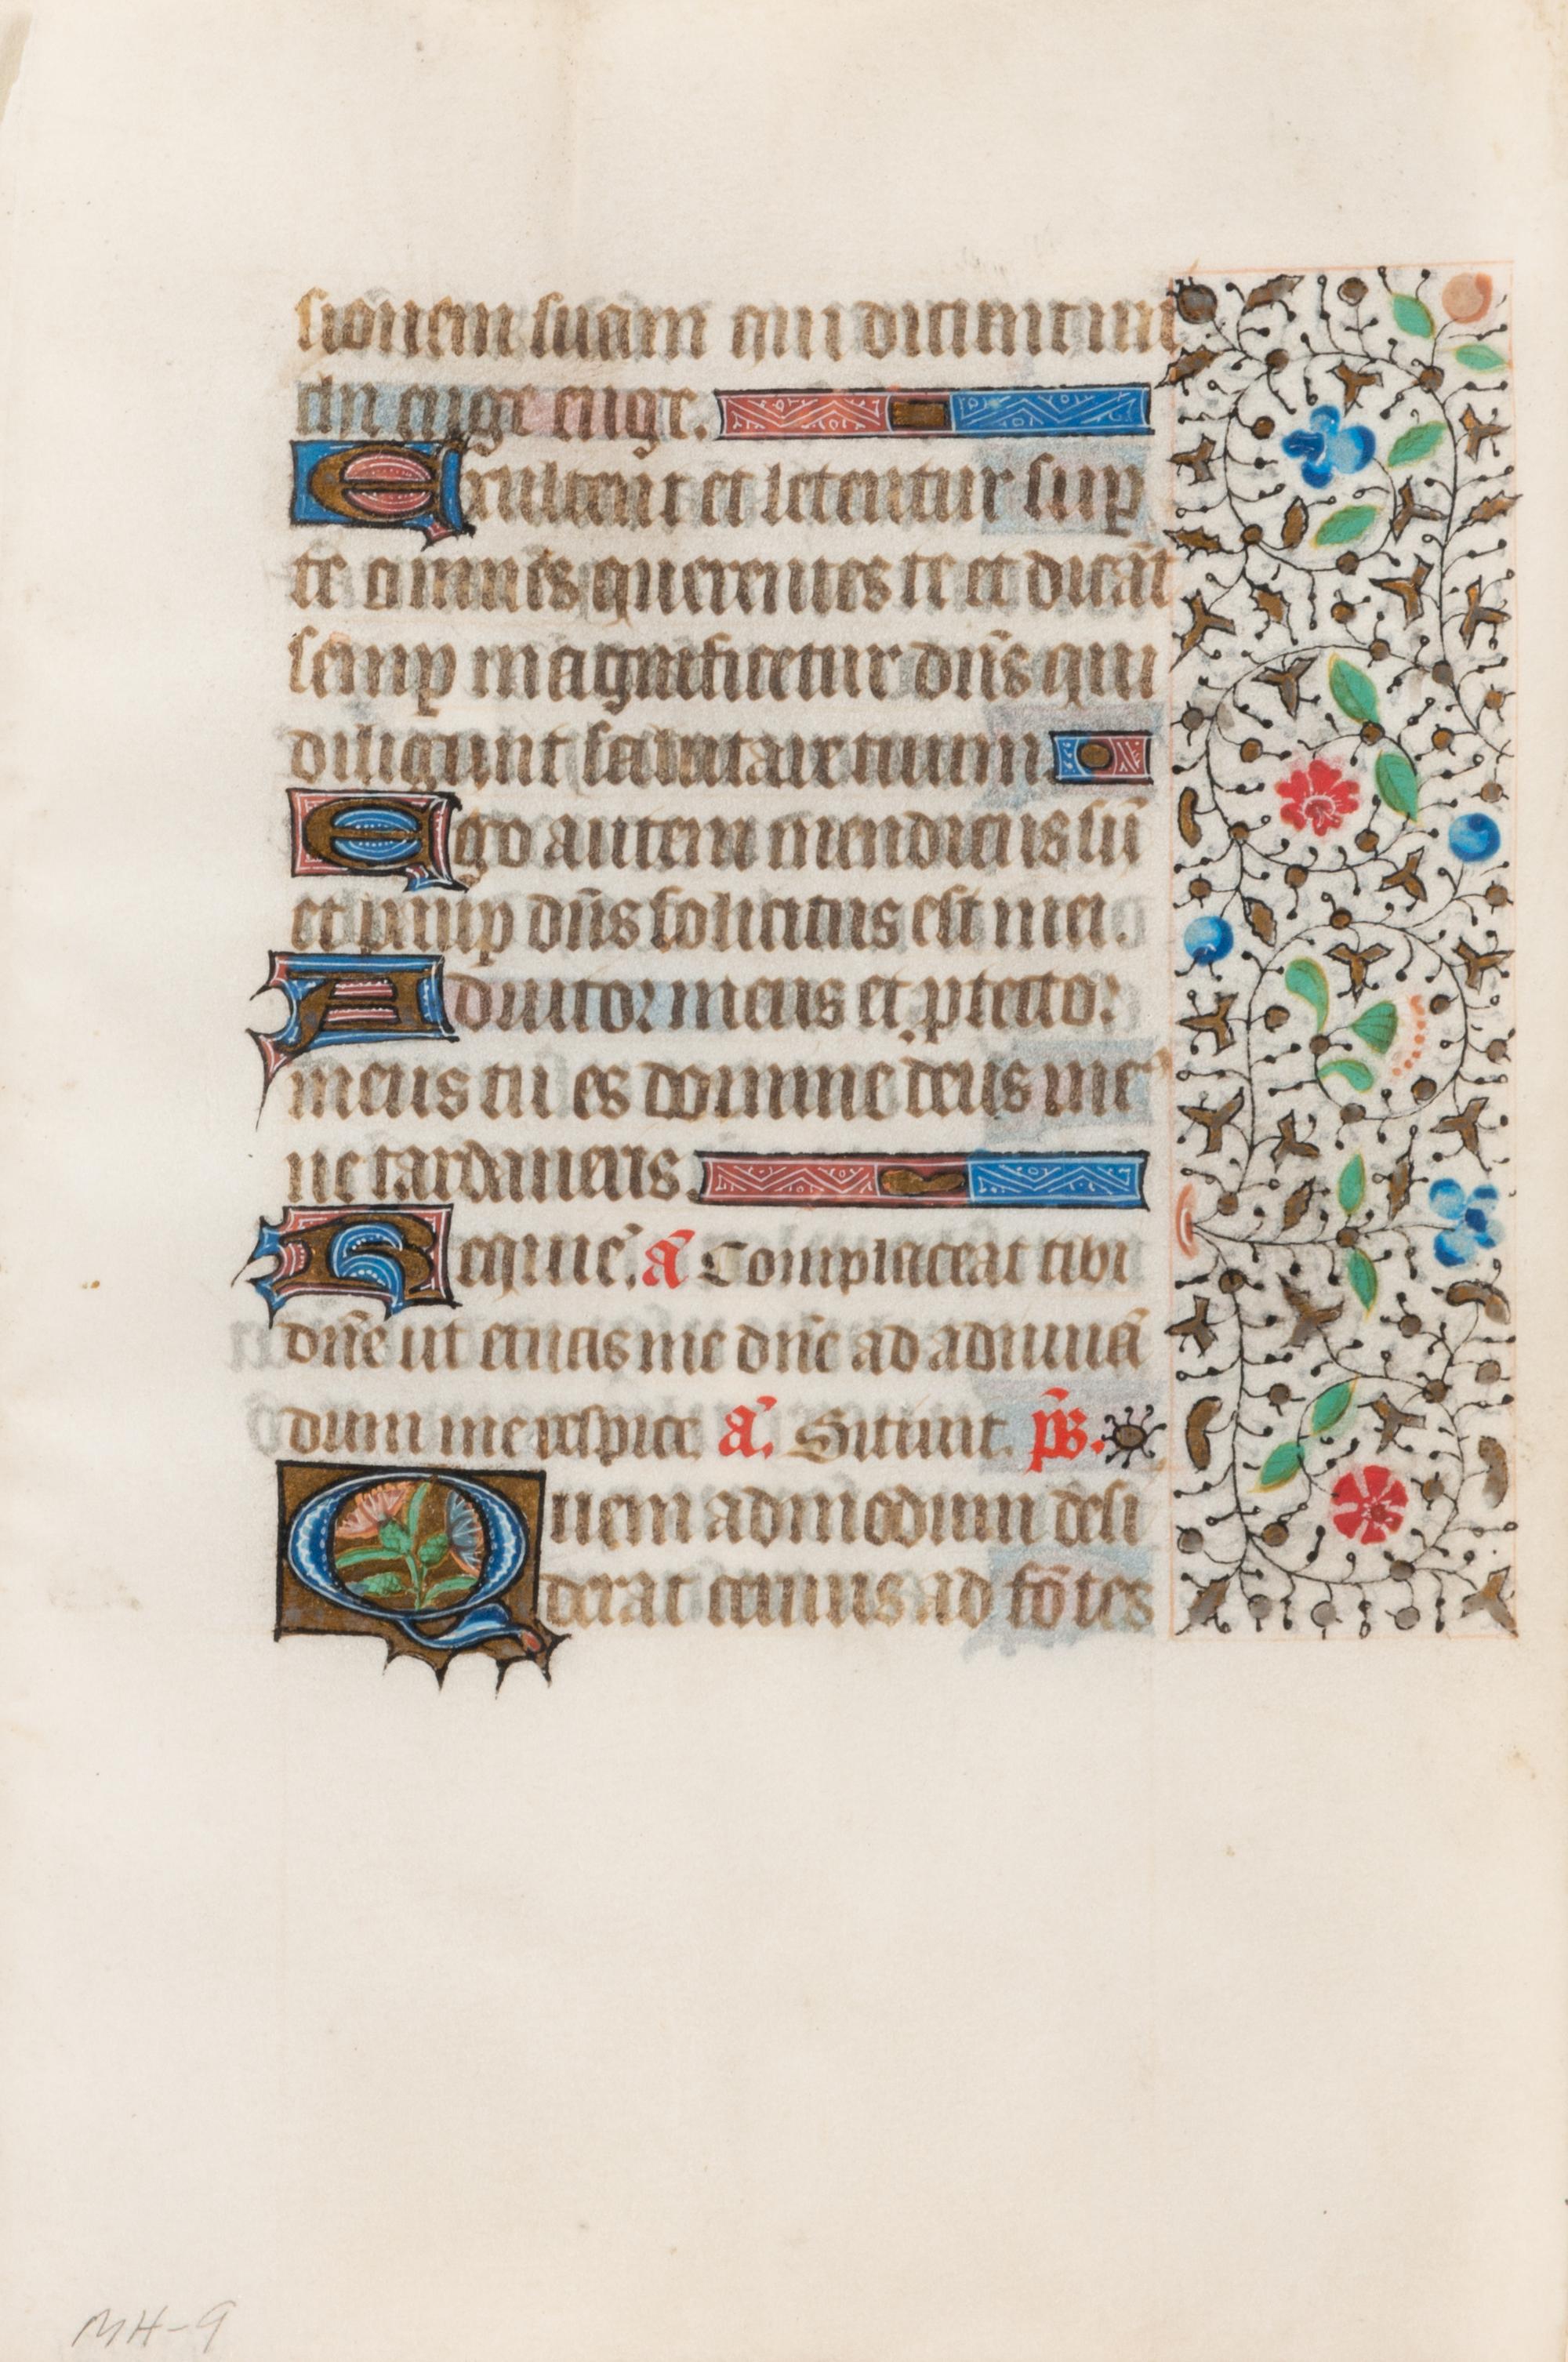 sionem suam qui dicunt mi
chi euge euge.
Exultent et letentur suꝑ
te omnes querentes te et dicãt
semꝑ magnificetur dñs qui
diligunt salutare tuum.
Ego autem mendicus sũ
et pauꝑ dñs solicitus est mei.
Adiutor meus et ꝓtector
meus tu es domine deus me
ne tardaueris.
Requiẽ. ã Complaceat tibi
dñe ut eruas me dñe ad adiuuã
dum me respice. ã. Sitiuit. ps̃.
Quem admodum desi
derat ceruus ad fõtes
MH-9